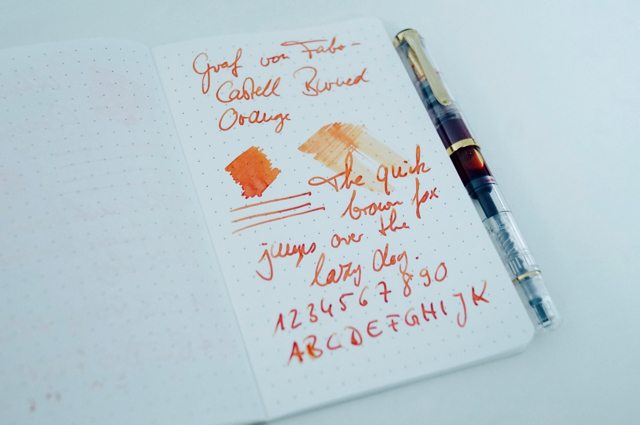 Graf von Faber-
Castell Burned
Orange
The quick
brown fox
jumps over the
lazy dog.
1234567890
ABCDEFGHIJK